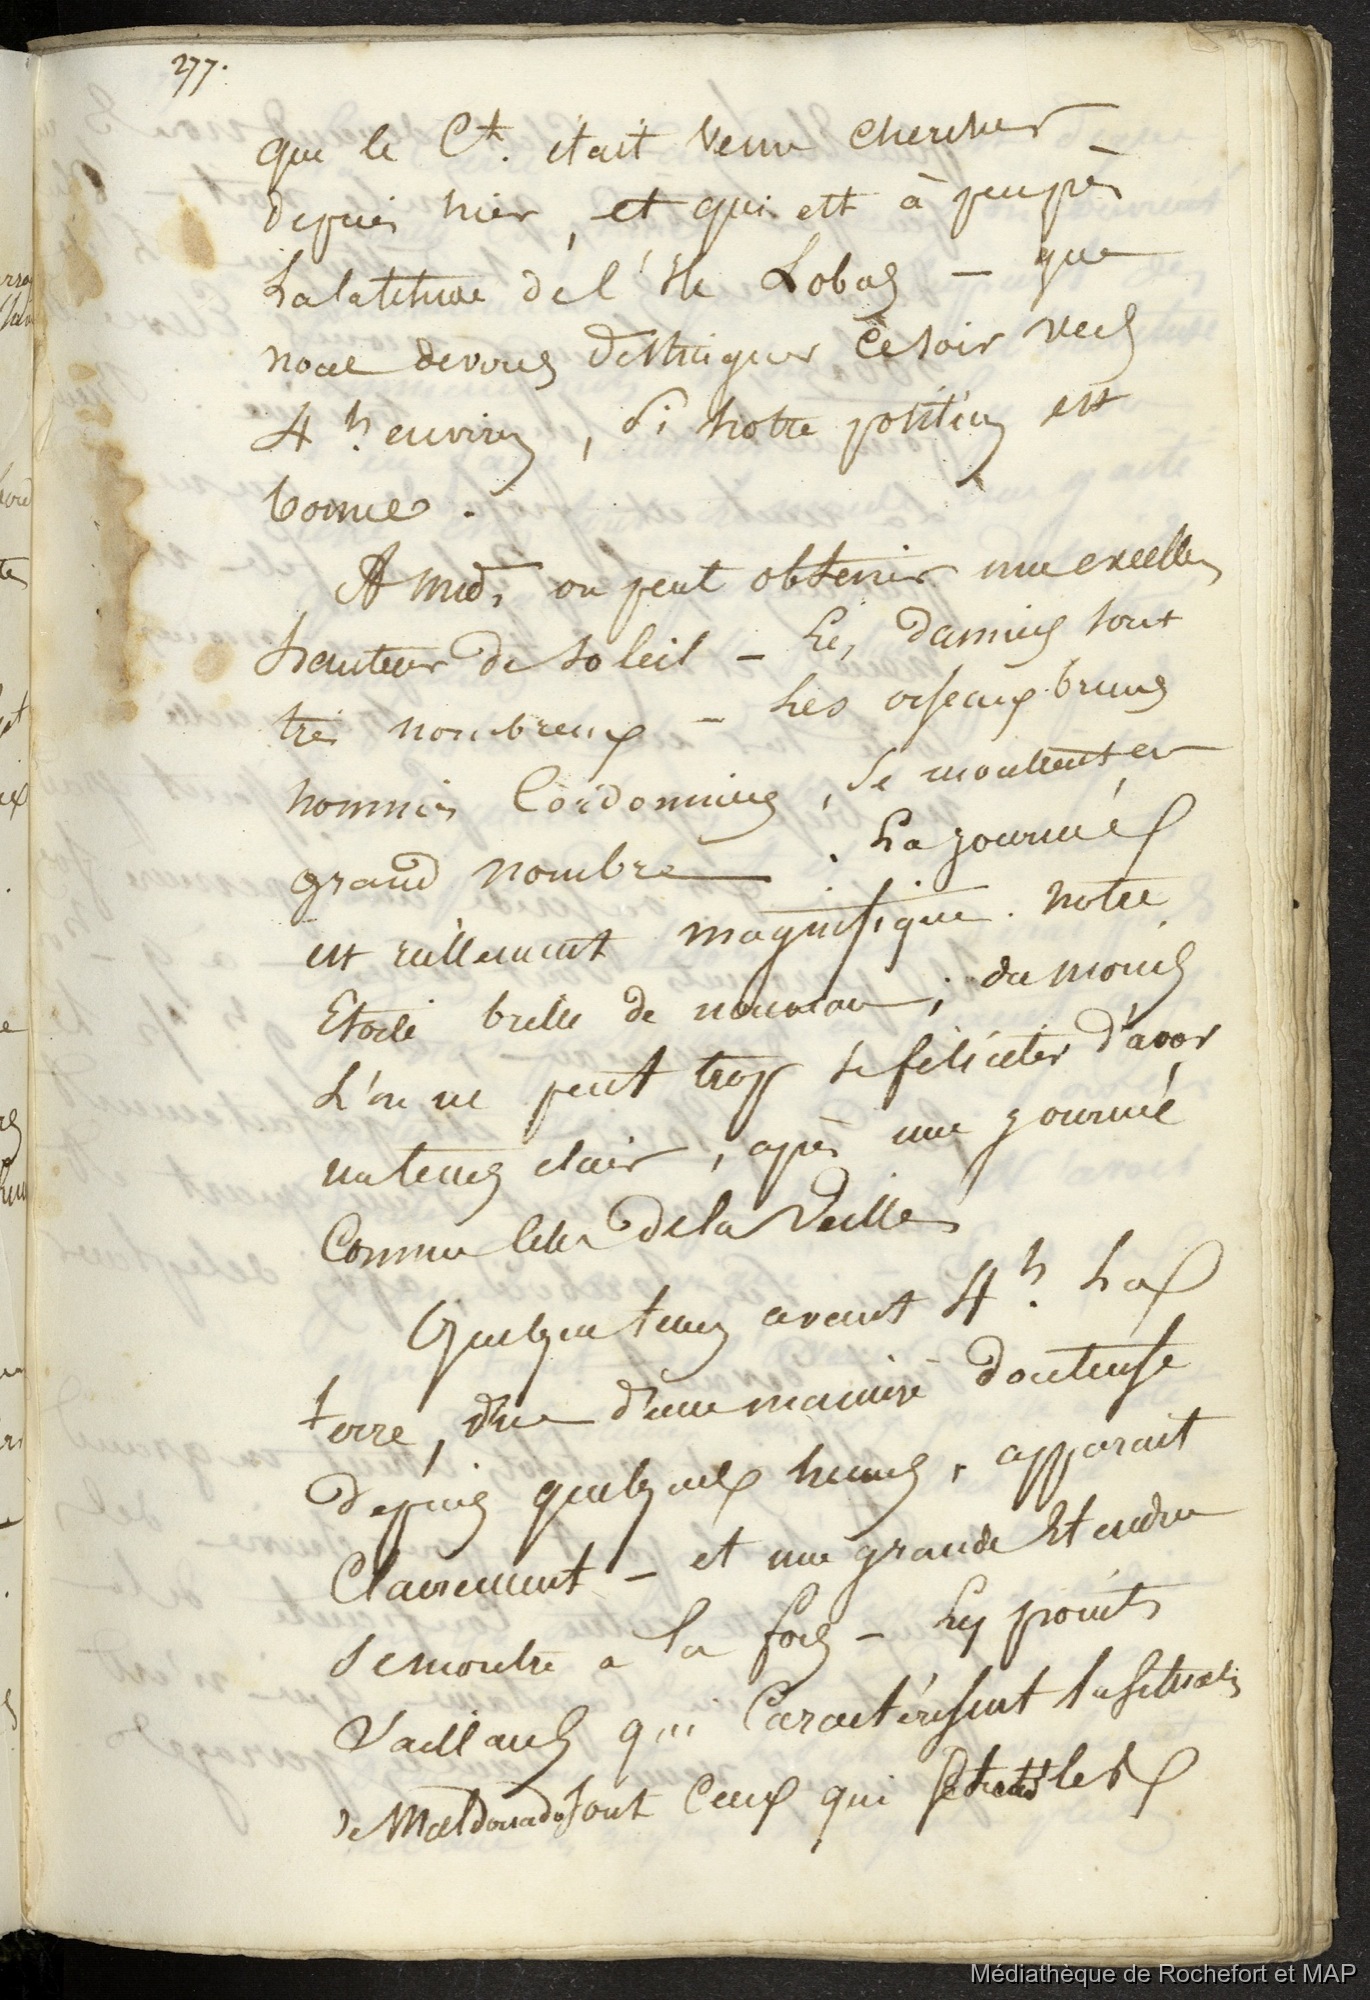 277.
que le Ct. était venu chercher
depuis hier, et qui est à peuprès
La latitude de l'Ile Lobos — que
nous devons distinguer ce soir vers
4 h. environ, si notre position est
bonne.
A midi on peut obtenir une excellente
hauteur de soleil — Les damiers sont
très nombreux — Les oiseaux bruns
nommés Cordonniers, se montrent en
grand nombre. La journée
est réellement magnifique. notre
Etoile brille de nouveau; du moins
L'on ne peut trop se féliciter d'avoir
un tems clair, après une journée
comme celle de la veille
Quelque tems avant 4 h. La
terre, vue d'une manière douteuse
depuis quelques heures, apparait
Clairement — et une grande Etendue
se montre a la fois — Les points
Saillants qui Caractérisent la situation
de Maldonado sont Ceux qui les
Médiathèque de Rochefort et MAP